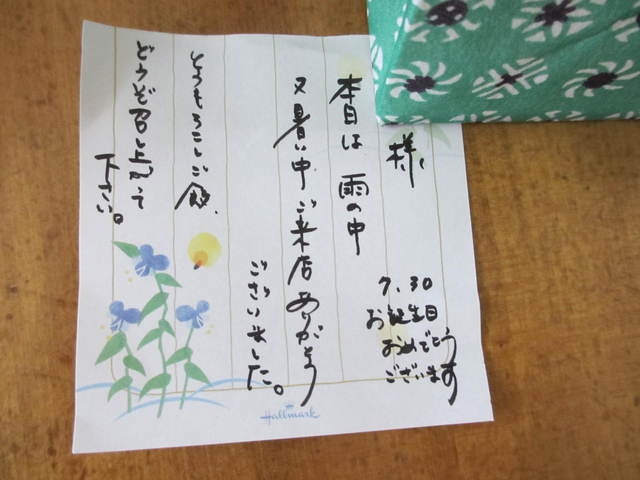 様
7.30
お誕生日
おめでとう
ございます
本日は 雨の中
又暑い中ご来店ありがとう
ございました。
とうもろこしご飯、
どうぞ召し上がって
下さい。
Hallmark